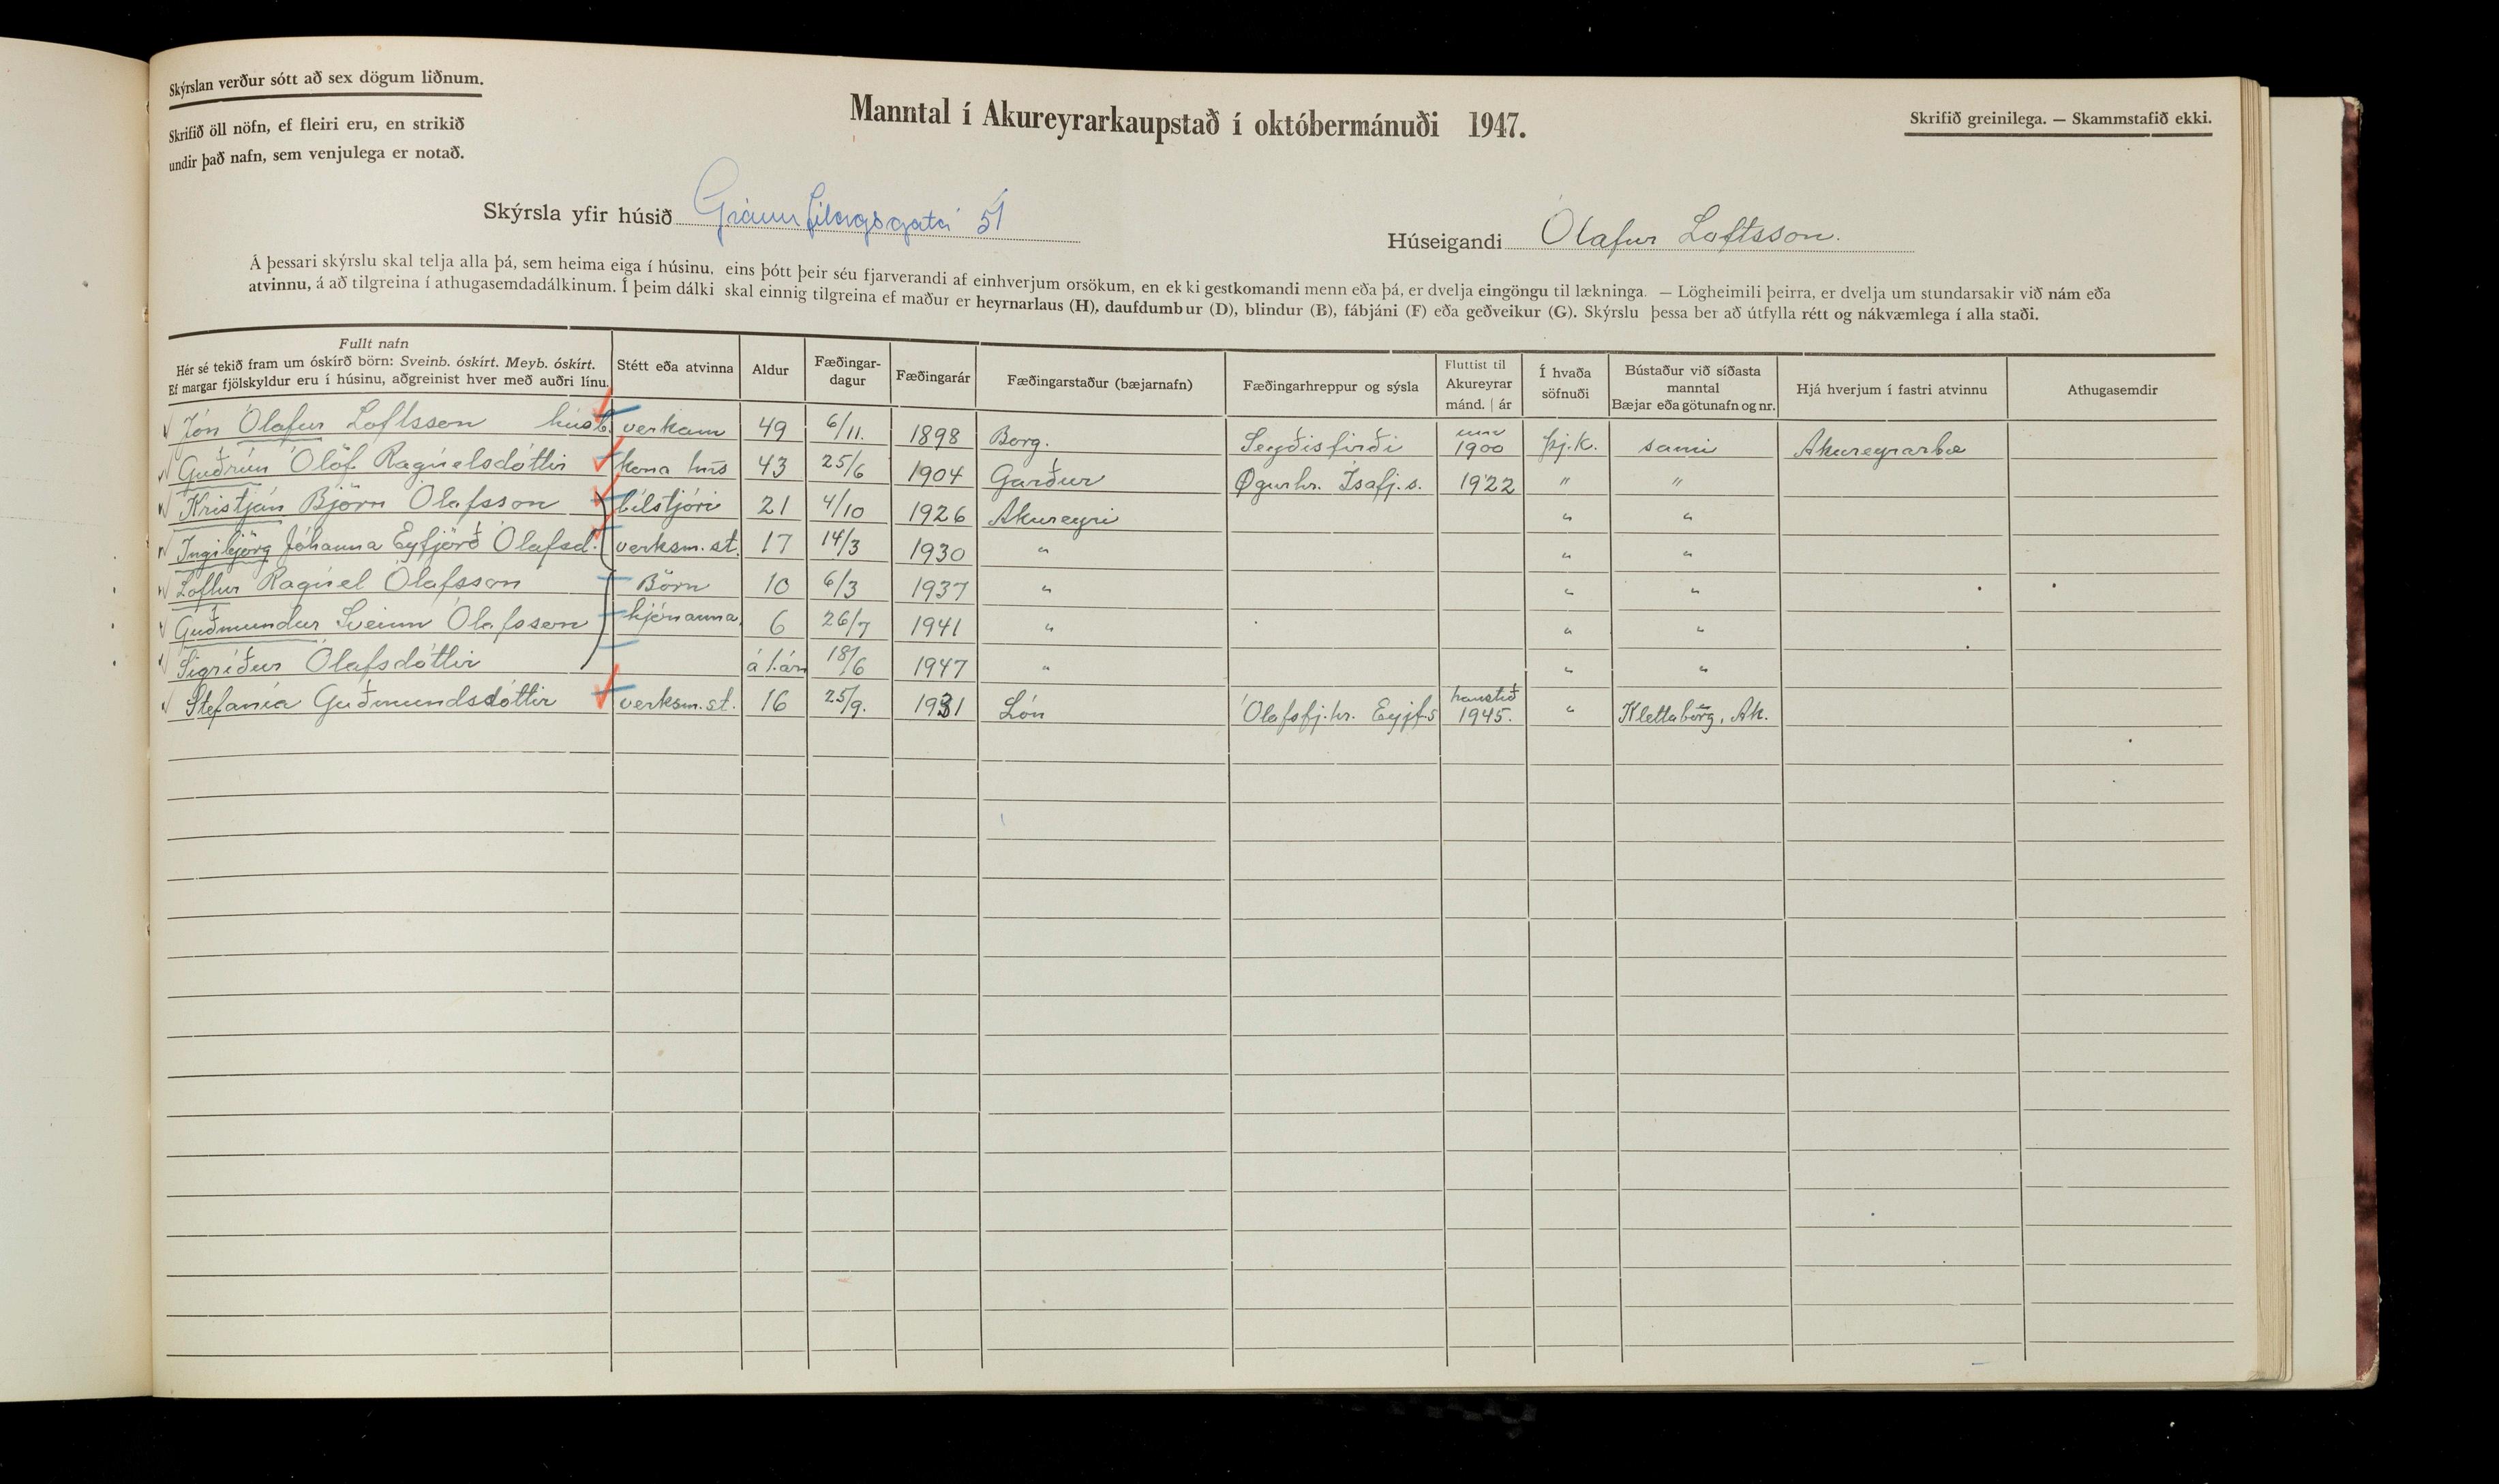 Skýrslan verður sótt að sex dögum liðnum.
Skrifið öll nöfn, ef fleiri eru, en strikið
undir það nafn, sem venjulega er notað.
Manntal í Akureyrarkaupstað í októbermánuði 1947.
Skrifið greinilega. — Skammstafið ekki.
Skýrsla yfir húsið Gránufélagsgata 51
Húseigandi Ólafur Loftsson.
Á þessari skýrslu skal telja alla þá, sem heima eiga í húsinu, eins þótt þeir séu fjarverandi af einhverjum orsökum, en ekki gestkomandi menn eða þá, er dvelja eingöngu til lækninga. — Lögheimili þeirra, er dvelja um stundarsakir við nám eða
atvinnu, á að tilgreina í athugasemdadálkinum. Í þeim dálki skal einnig tilgreina ef maður er heyrnarlaus (H), daufdumbur (D), blindur (B), fábjáni (F) eða geðveikur (G). Skýrslu þessa ber að útfylla rétt og nákvæmlega í alla staði.
Fullt nafn
Hér sé tekið fram um óskírð börn: Sveinb. óskírt. Meyb. óskírt.
Ef margar fjölskyldur eru í húsinu, aðgreinist hver með auðri línu.
Stétt eða atvinna
Aldur
Fæðingar-
dagur
Fæðingarár
Fæðingarstaður (bæjarnafn)
Fæðingarhreppur og sýsla
Fluttist til
Akureyrar
mánd. | ár
Í hvaða
söfnuði
Bústaður við síðasta
manntal
Bæjar eða götunafn og nr.
Hjá hverjum í fastri atvinnu
Athugasemdir
Jón Ólafur Loftsson húsb. verkam 49 6/11. 1898 Borg. Seyðisfirði 1900 þj.k. sami Akureyrarbæ
Guðrún Ólöf Ragúelsdóttir kona hús 43 25/6 1904 Garður Øgurhr. Ísafj.s. 1922 " "
Kristján Björn Ólafsson bílstjóri 21 4/10 1926 Akureyri " "
Ingibjörg Jóhanna Eyfjörð Ólafsd. verksm.st. 17 14/3 1930 " " "
Loftur Ragúel Ólafsson Börn 10 6/3 1937 " " "
Guðmundur Sveinn Ólafsson hjónanna. 6 26/7 1941 " " "
Sigríður Ólafsdóttir á 1. ári 18/6 1947 " " "
Stefanía Guðmundsdóttir verksm.st. 16 25/9. 1931 Lón Ólafsfj.hr. Eyjf.s haustið 1945. " Klettaborg, Ak.